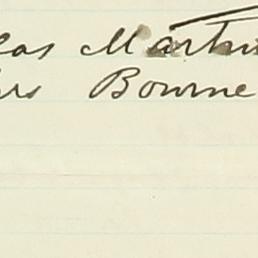 las Martin
rs Bourne